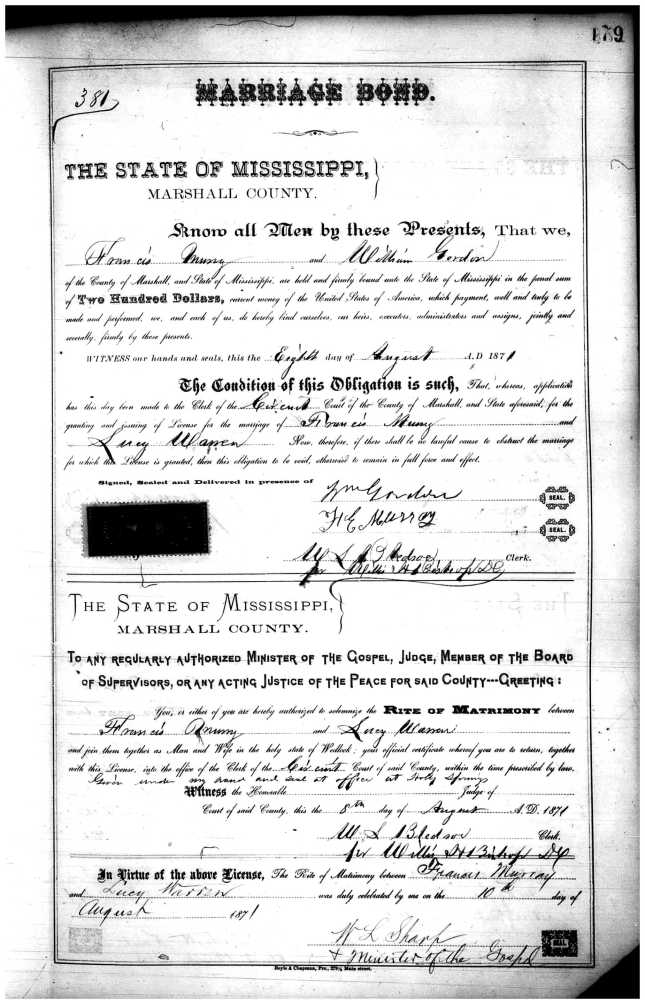 179
381
MARRIAGE BOND.
THE STATE OF MISSISSIPPI,
MARSHALL COUNTY.
Know all Men by these Presents, That we,
Francis Murry and William Gordon
of the County of Marshall, and State of Mississippi, are held and firmly bound unto the State of Mississippi in the penal sum
of Two Hundred Dollars, current money of the United States of America, which payment, well and truly to be
made and performed, we, and each of us, do hereby bind ourselves, our heirs, executors, administrators and assigns, jointly and
severally, firmly by these presents.
WITNESS our hands and seals, this the Eighth day of August A.D 1871
The Condition of this Obligation is such, That, whereas, application
has this day been made to the Clerk of the Circuit Court of the County of Marshall, and State aforesaid, for the
granting and issuing of License for the marriage of Francis Murry and
Lucy Warren Now, therefore, if there shall be no lawful cause to obstruct the marriage
for which this License is granted, then this obligation to be void, otherwise to remain in full force and effect.
Signed, Sealed and Delivered in presence of
Wm Gordon SEAL.
F E Murray SEAL.
W S Bledsoe Clerk.
pr Willis H Bishop DC
THE STATE OF MISSISSIPPI,
MARSHALL COUNTY.
TO ANY REGULARLY AUTHORIZED MINISTER OF THE GOSPEL, JUDGE, MEMBER OF THE BOARD
OF SUPERVISORS, OR ANY ACTING JUSTICE OF THE PEACE FOR SAID COUNTY---GREETING:
You, or either of you are hereby authorized to solemnize the RITE OF MATRIMONY between
Francis Murry and Lucy Warren
and join them together as Man and Wife in the holy state of Wedlock; your official certificate whereof you are to return, together
with this License, into the office of the Clerk of the Circuit Court of said County, within the time prescribed by law.
Given under my hand and seal at office at Holly Springs
Witness the Honorable Judge of
Court of said County, this the 8th day of August A.D. 1871
W S Bledsoe Clerk.
pr Willis H Bishop DC
In Virtue of the above License, The Rite of Matrimony between Francis Murray
and Lucy Warren was duly celebrated by me on the 10th day of
August 1871
W L Sharp
Minister of the Gospel
SEAL.
Boyle & Chapman, Prs., 279½ Main street.